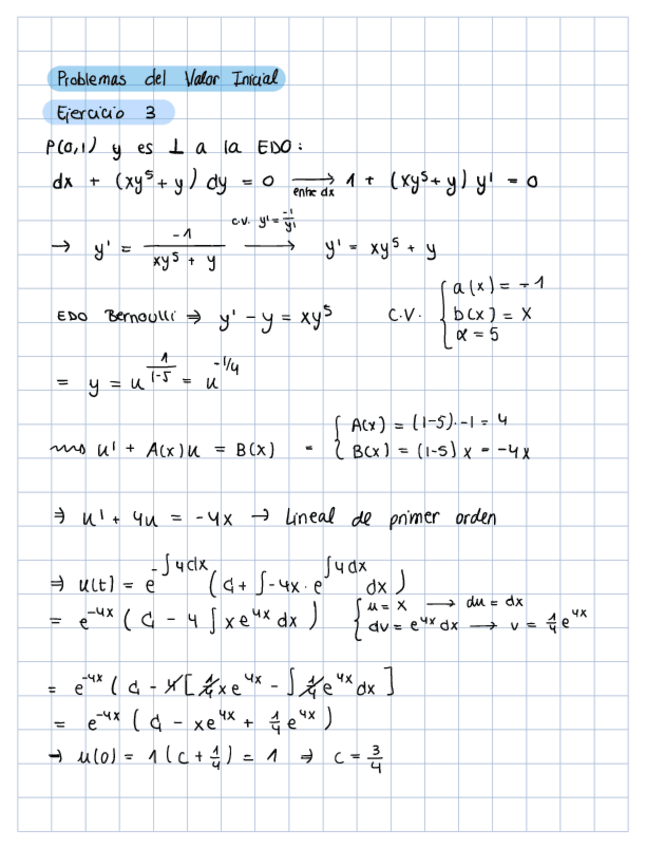 Problemas del Valor Inicial
Ejercicio 3
P(0,1) y es ⊥ a la EDO:
dx + (xy⁵ + y) dy = 0 ⟶ entre dx 1 + (xy⁵ + y) y' = 0
→ y' = -1/(xy⁵ + y) ⟶ c.v. y' = -1/y' y' = xy⁵ + y
EDO Bernoulli ⇒ y' - y = xy⁵ C.V. { a(x) = -1
b(x) = x
α = 5
= y = u^(1/(1-5)) = u^(-1/4)
u' + A(x)u = B(x) = { A(x) = (1-5)·-1 = 4
B(x) = (1-5) x = -4x
⇒ u' + 4u = -4x → Lineal de primer orden
⇒ u(t) = e^(-∫4dx) (C + ∫-4x · e^(∫4dx) dx)
= e^(-4x) (C - 4 ∫ x e^(4x) dx) { u = x → du = dx
dv = e^(4x) dx → v = 1/4 e^(4x)
= e^(-4x) (C - 4 [1/4 x e^(4x) - ∫ 1/4 e^(4x) dx]
= e^(-4x) (C - x e^(4x) + 1/4 e^(4x))
→ u(0) = 1 (C + 1/4) = 1 ⇒ C = 3/4